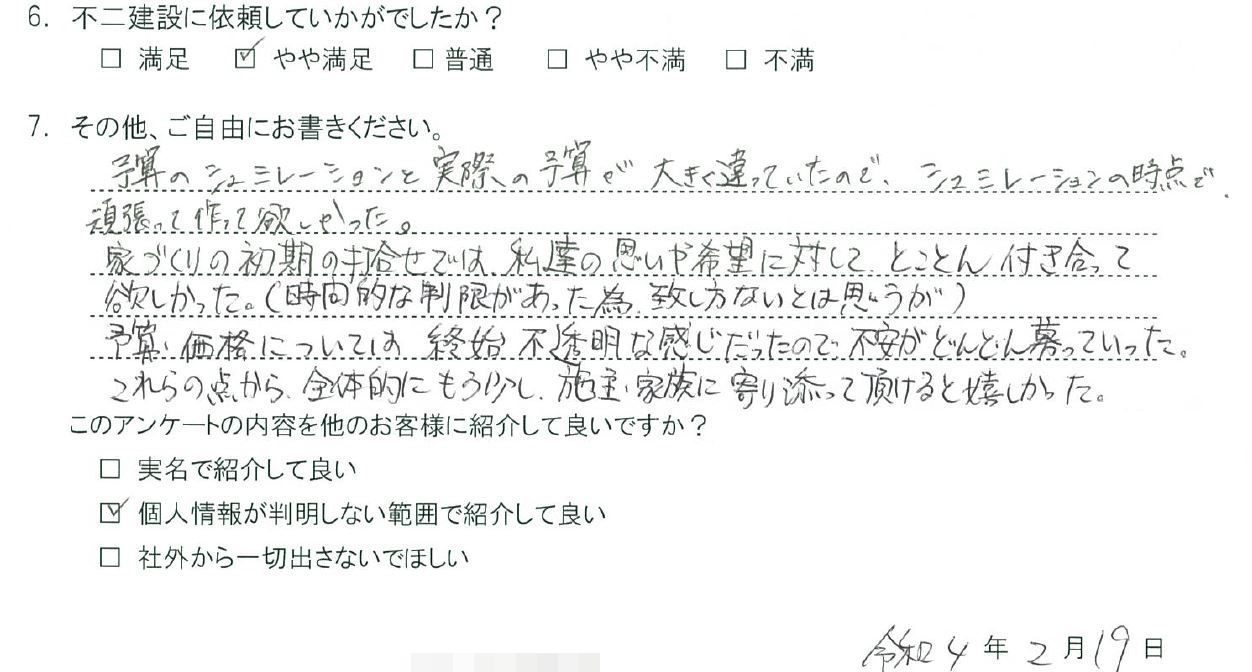 6. 不二建設に依頼していかがでしたか？
□ 満足 ☑ やや満足 □ 普通 □ やや不満 □ 不満
7. その他、ご自由にお書きください。
予算のシュミレーションと実際の予算が大きく違っていたので、シュミレーションの時点で、
頑張って作って欲しかった。
家づくりの初期の打合せでは、私達の思いや希望に対して、とことん付き合って
欲しかった。(時間的な制限があった為、致し方ないとは思うが)
予算・価格については、終始、不透明な感じだったので、不安がどんどん募っていった。
これらの点から、全体的にもう少し、施主・家族に寄り添って頂けると嬉しかった。
このアンケートの内容を他のお客様に紹介して良いですか？
□ 実名で紹介して良い
☑ 個人情報が判明しない範囲で紹介して良い
□ 社外から一切出さないでほしい
令和4年2月19日